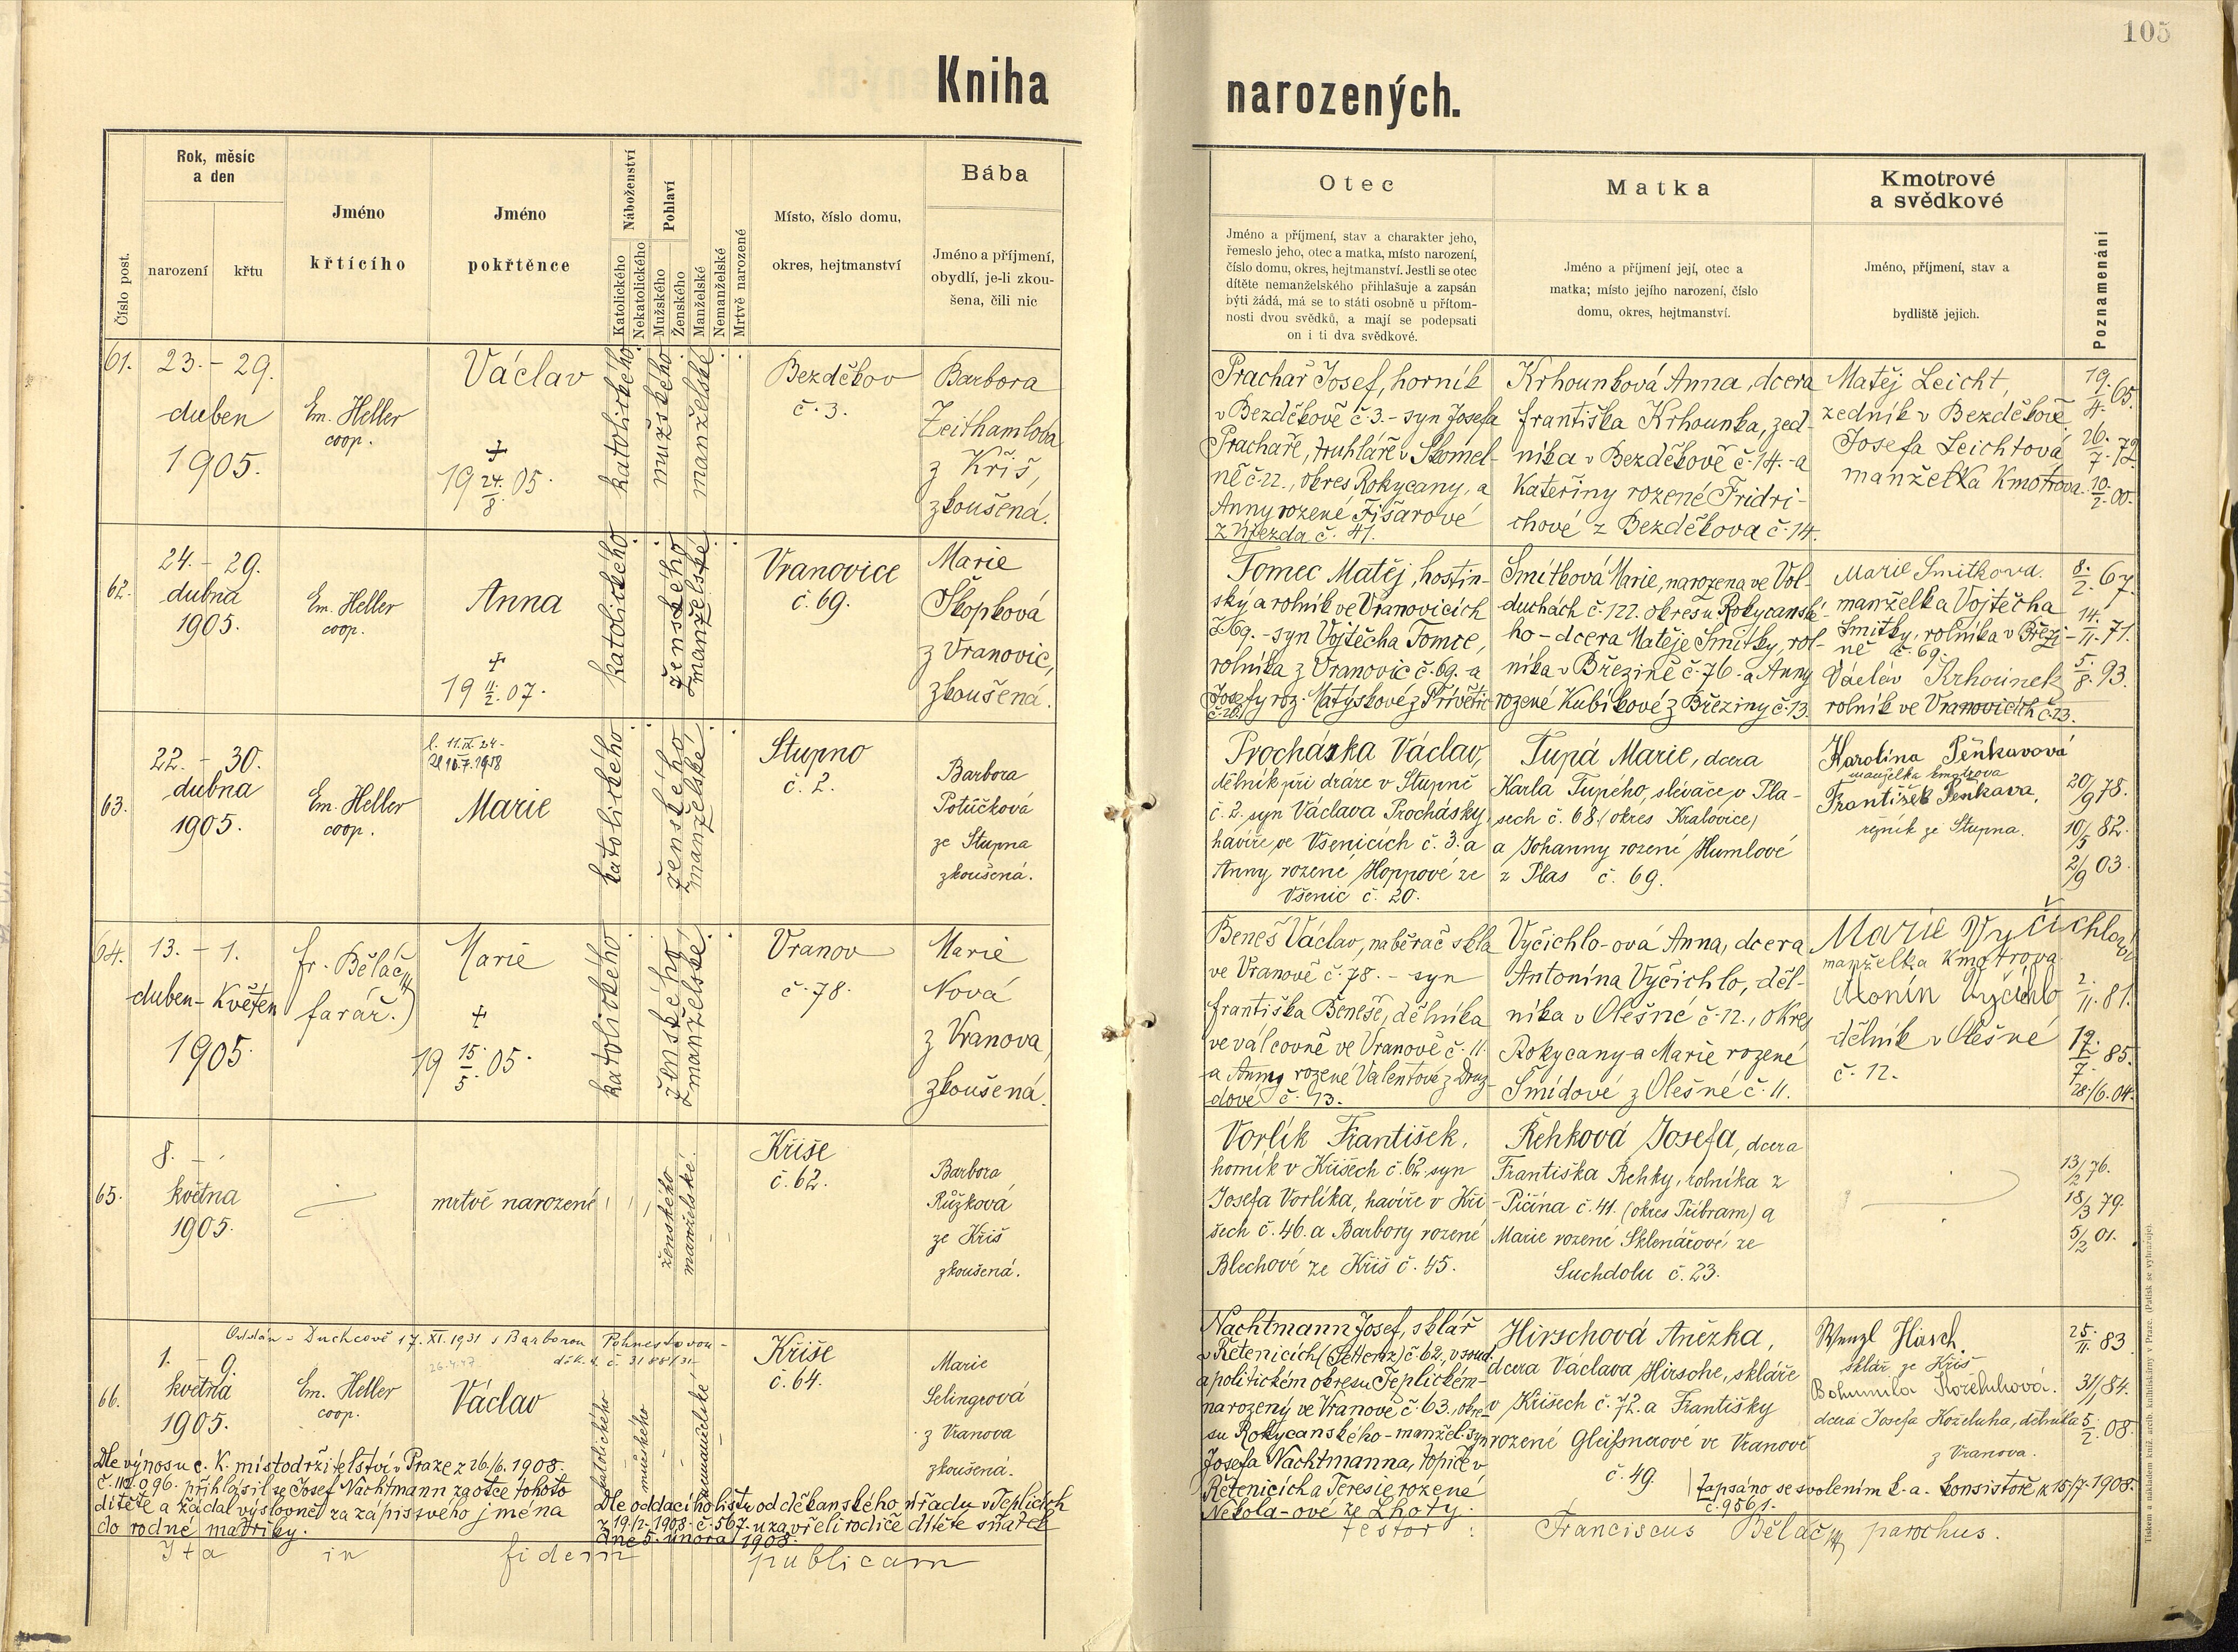 105
Kniha narozených.
Číslo post.
Rok, měsíc
a den
narození
křtu
Jméno
křtícího
Jméno
pokřtěnce
Náboženství
Katolického
Nekatolického
Pohlaví
Mužského
Ženského
Manželské
Nemanželské
Mrtvě narozené
Místo, číslo domu,
okres, hejtmanství
Bába
Jméno a příjmení,
obydlí, je-li zkou-
šena, čili nic
Otec
Jméno a příjmení, stav a charakter jeho,
řemeslo jeho, otec a matka, místo narození,
číslo domu, okres, hejtmanství. Jestli se otec
dítěte nemanželského přihlašuje a zapsán
býti žádá, má se to státi osobně u přítom-
nosti dvou svědků, a mají se podepsati
on i ti dva svědkové.
Matka
Jméno a příjmení její, otec a
matka; místo jejího narození, číslo
domu, okres, hejtmanství.
Kmotrové
a svědkové
Jméno, příjmení, stav a
bydliště jejich.
Poznamenání
61.
23. - 29.
duben
1905.
Em. Heller
coop.
Václav
+
19 24./8. 05.
katolického
mužského
manželské
Bezděkov
č. 3.
Barbora
Zeithamlova
z Kříš,
zkoušená.
Prachař Josef, horník
v Bezděkově č. 3. - syn Josefa
Prachaře, truhláře v Skomel-
ně č. 22., okres Rokycany, a
Anny rozené Fišarové
z Újezda č. 41.
Krhounková Anna, dcera
Františka Krhounka, zed-
níka v Bezděkově č. 14. - a
Kateřiny rozené Fridri-
chové z Bezděkova č. 14.
Matěj Leicht,
zedník v Bezděkově.
Josefa Leichtová
manželka kmotrova.
19./4. 65.
26./7. 72.
10./2. 00.
62.
24. - 29.
dubna
1905.
Em. Heller
coop.
Anna
+
19 11./2. 07.
katolického
ženského
manželské
Vranovice
č. 69.
Marie
Skopková
z Vranovic,
zkoušená.
Tomec Matěj, hostin-
ský a rolník ve Vranovicích
č. 69. - syn Vojtěcha Tomce,
rolníka z Vranovic č. 69. - a
Josefy roz. Matýskové z Přívětic
č. 26.
Šmitková Marie, narozena ve Vol-
duchách č. 122. okresu Rokycanské-
ho - dcera Matěje Šmitky, rol-
níka v Březině č. 76. - a Anny
rozené Kubíkové z Březiny č. 13.
Marie Smitkova.
manželka Vojtěcha
Šmitky, rolníka v Březi-
ně č. 69.
Václav Krhounek
rolník ve Vranovicích č. 23.
8./2. 67.
14./11. 71.
5./8. 93.
63.
22. - 30.
dubna
1905.
Em. Heller
coop.
Marie
katolického
ženského
manželské
Stupno
č. 2.
Barbora
Potůčková
ze Stupna
zkoušená.
Procházka Václav,
dělník při dráze v Stupně
č. 2. syn Václava Procházky,
havíře ve Všenicích č. 3. a
Anny rozené Hoppové ze
Všenic č. 20.
Tupá Marie, dcera
Karla Tupého, slévače v Pla-
sech č. 68. (okres Kralovice)
a Johanny rozené Humlové
z Plas č. 69.
Karolina Peňkavová
manželka kmotrova
František Penkava,
řezník ze Stupna.
20/9 78.
10/5 82.
2/9 03.
64.
13. - 1.
duben - Květen
1905.
Fr. Běláč
farář.
Marie
+
19 15./5. 05.
katolického
ženského
manželské
Vranov
č. 78.
Marie
Nová
z Vranova,
zkoušená.
Beneš Václav, naběrač skla
ve Vranově č. 78. - syn
Františka Beneše, dělníka
ve válcovně ve Vranově č. 11.
a Anny rozené Valentové z Druz-
dové č. 13.
Vyčichlo-ová Anna, dcera
Antonína Vyčichlo, děl-
níka v Olešné č. 12., okres
Rokycany a Marie rozené
Šmídové z Olešné č. 11.
Marie Vyčichlová
manželka kmotrova
Vyčichlo
dělník v Olešné
č. 12.
2./11. 81.
17./7. 85.
28./6. 04.
65.
8. -
května
1905.
mrtvě narozené
ženského
manželské
Kříše
č. 62.
Barbora
Růžková
ze Kříš
zkoušená.
Vorlík František,
horník v Kříších č. 62. syn
Josefa Vorlíka, havíře v Kří-
šech č. 46. a Barbory rozené
Blechové ze Kříš č. 45.
Řehková Josefa, dcera
Františka Řehky, rolníka z
Pičína č. 41. (okres Příbram) a
Marie rozené Sklenářové ze
Suchdolu č. 23.
13/2 76.
18/3 79.
5/2 01.
Oddán v Duchcově 17. XI. 1931 s Barborou
66.
1. - 9.
května
1905.
Em. Heller
coop.
Václav
katolického
mužského
Kříše
č. 64.
Marie
Selingrová
z Vranova
zkoušená.
Nachtmann Josef, sklář
v Řetenicích (Settenz) č. 62, v soud.
a politickém okresu Teplickém-
narozený ve Vranově č. 63., okre-
su Rokycanského - manžel. syn
Josefa Nachtmanna, topiče v
Řetenicích a Teresie rozené
Nekola-ové ze Lhoty.
Hirschová Anežka,
dcera Václava Hirsche, skláře
v Kříšech č. 72. a Františky
rozené Gleißnerové ve Vranově
č. 49.
Wenzl Hirsch.
sklář ze Kříš
Bohumila Koželuhová.
dcera Josefa Koželuha, dělníka
z Vranova.
25./11. 83
31/1 84.
5./2. 08.
Zapsáno se svolením k. a. konsistoře z 15/7. 1908.
č. 9561.
Dle výnosu c. K. místodržitelství v Praze z 26./6. 1908.
č. 112.096. přihlásil se Josef Nachtmann za otce tohoto
dítěte a žádal výslovně za zápis svého jména
do rodné matriky.
Dle oddacího listu od děkanského úřadu v Teplicích
z 19./2. 1908. č. 567. uzavřeli rodiče dítěte sňatek
dne 5. února 1908.
Ita in fidem publicam testor: Franciscus Běláč parochus.
Tiskem a nákladem kníž. arcib. knihtiskárny v Praze. (Patisk se vyhrazuje).